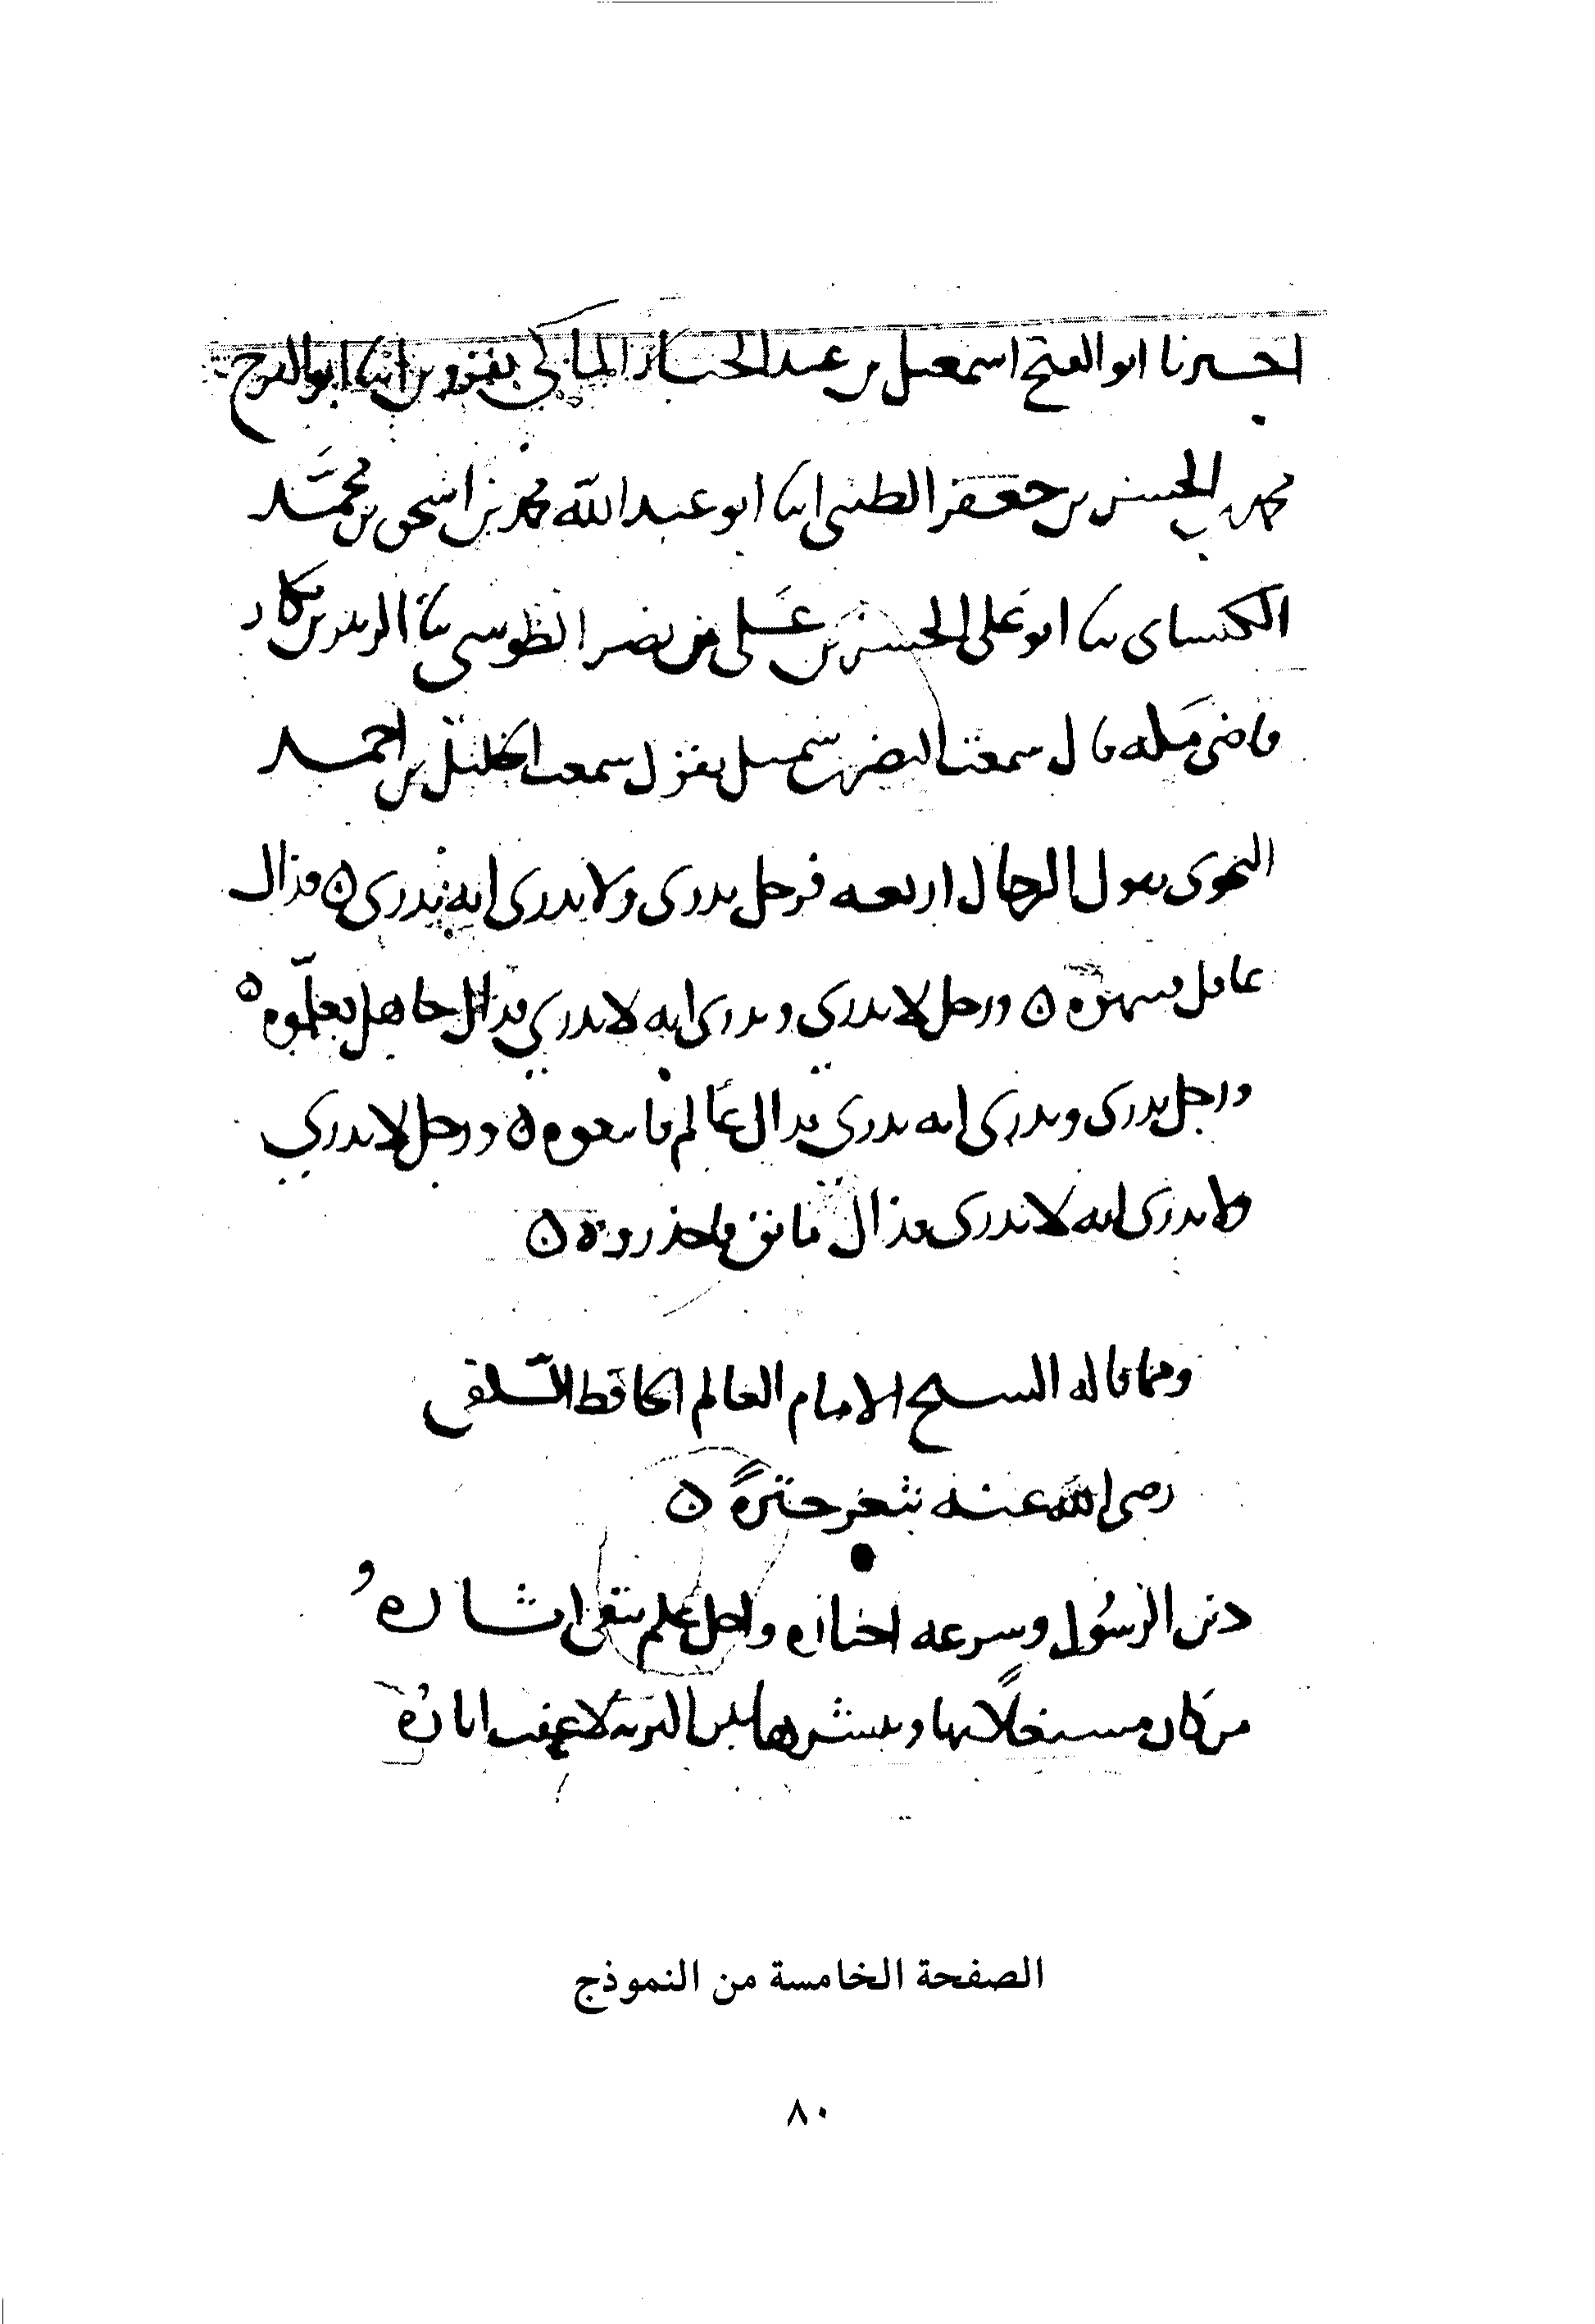 اخبرنا ابو الفتح اسمعيل بن عبد الجبار الماكي بقزوين انبا ابو الفرج
محمد بن الحسن بن جعفر الطيبي انبا ابو عبد الله محمد بن اسحق بن محمد
الكيساى ثنا ابو على الحسن بن على بن نصر الطوسى ثنا الزبير بن بكار
قاضى مكه قال سمعت النضر بن شميل يقول سمعت الخليل بن احمد
النحوى يقول الرجال اربعه فرجل يدرى ولا يدرى انه يدرى ه فذاك
غافل فنبهوه ه ورجل لا يدري ويدرى انه لا يدري فذاك جاهل فعلموه ه
ورجل يدرى ويدرى انه يدري فذاك عالم فاتبعوه ه ورجل لا يدري
ولا يدرى انه لا يدرى فذاك مائق فاحذروه ه
ومما قاله الشيخ الامام العالم الحافظ السلفى
رضى الله عنه بثغر حنزة ه
دين الرسول وشرعه اخباره واجل علم يقتفى اثاره
من كان مشتغلا بها وبنشرها بين البرية لا عفت اثاره
الصفحة الخامسة من النموذج
٨٠